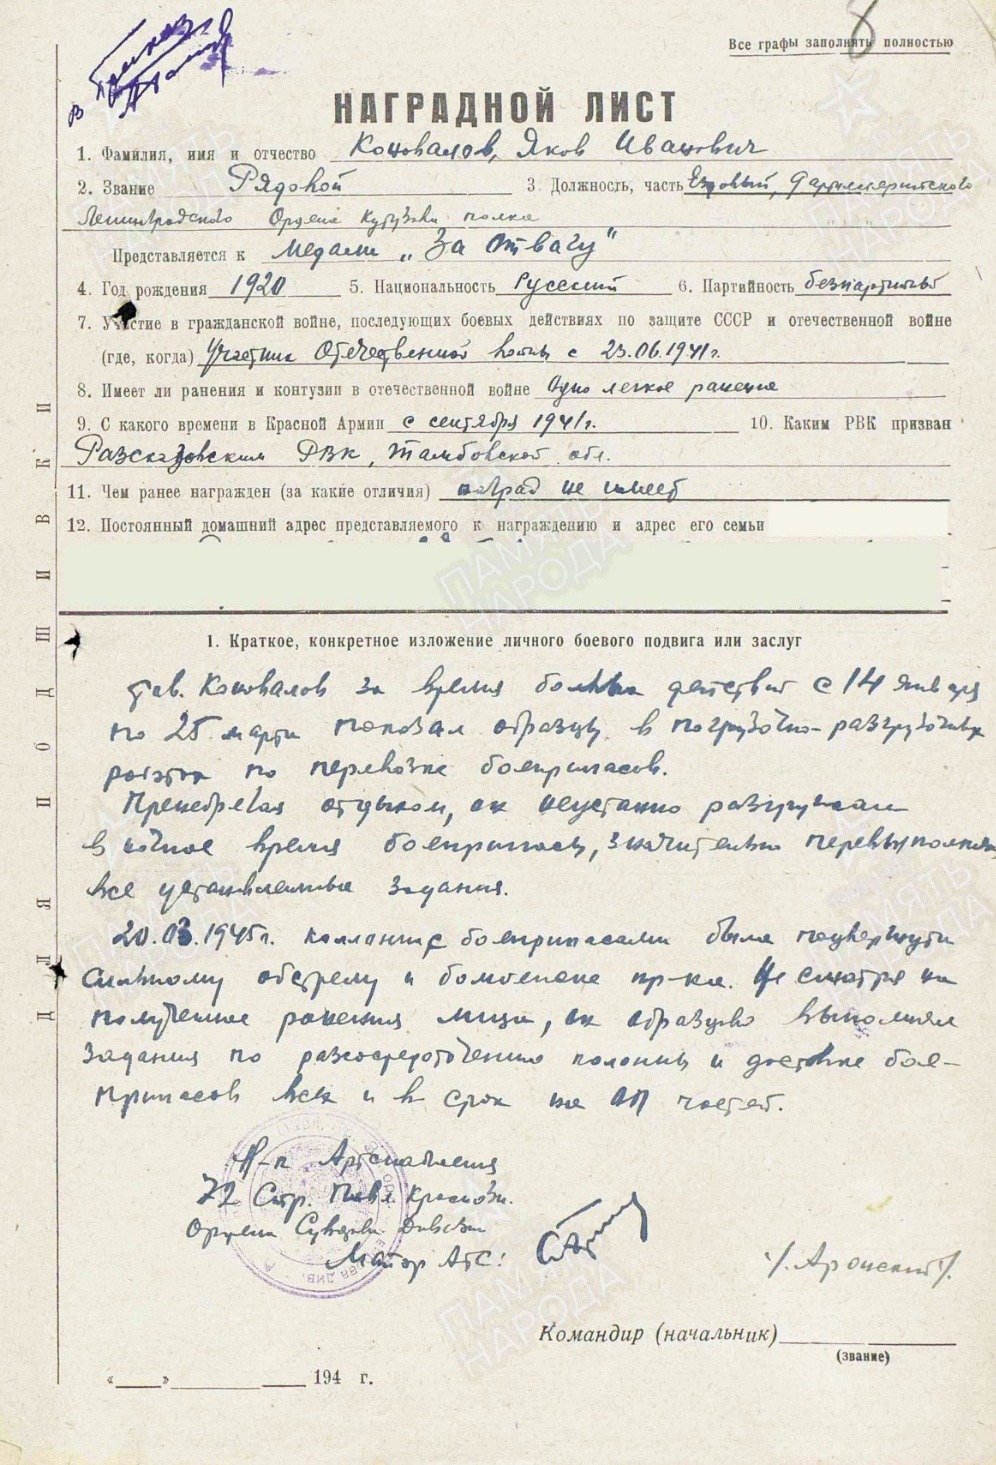 в приказ
8
Все графы заполнять полностью
НАГРАДНОЙ ЛИСТ
1. Фамилия, имя и отчество Коновалов, Яков Иванович
2. Звание Рядовой 3 Должность, часть Ездовый, Артиллерийского
Ленинградского Ордена Кутузова полка
Представляется к медали „За отвагу"
4. Год рождения 1920 5. Национальность Русский 6. Партийность безпартийн
7. Участие в гражданской войне, последующих боевых действиях по защите СССР и отечественной войне
(где, когда) Участник Отечественной войны с 23.06.1941г.
8. Имеет ли ранения и контузии в отечественной войне Одно легкое ранение
9. С какого времени в Красной Армии с сентября 1941г. 10. Каким РВК призван
Разсказовским РВК, Тамбовской обл.
11. Чем ранее награжден (за какие отличия) наград не имеет
12. Постоянный домашний адрес представляемого к награждению и адрес его семьи
ДЛЯ ПОДШИВКИ
1. Краткое, конкретное изложение личного боевого подвига или заслуг
тов. Коновалов за время боевых действий с 14 января
по 25 марта показал образцы в погрузочно-разгрузочных
работах по перевозке боеприпасов.
Пренебрегая отдыхом, он неустанно разгружал
в ночное время боеприпасы, значительно перевыполняя
все установленные задания.
20.03.1945г. колонна с боеприпасами была подвергнута
сильному обстрелу и бомбежке пр-ка. Не смотря на
полученные ранения лица, он образцово выполнял
задания по рассосредоточению колонны и доставке бое-
припасов всех и в срок на ОП частей.
Н-к Артснабжения
72 Стр. Павл. Краснозн.
Ордена Суворова Дивизии
Майор АТС:
/Аронский/.
Командир (начальник)
(звание)
« » 194 г.
ПАМЯТЬ НАРОДА